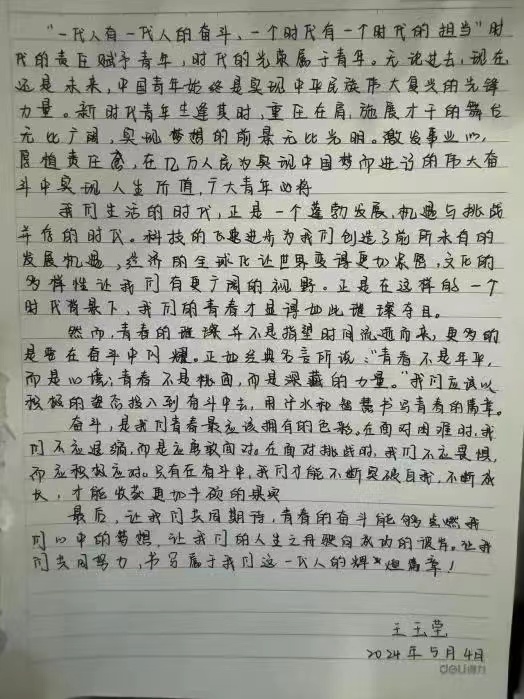 “一代人有一代人的奋斗、一个时代有一个时代的担当”时
代的责任赋予青年，时代的光荣属于青年。无论过去，现在
还是未来，中国青年始终是实现中华民族伟大复兴的先锋
力量。新时代青年生逢其时，重任在肩，施展才干的舞台
无比广阔，实现梦想的前景无比光明。激发事业心，
厚植责任感，在亿万人民为实现中国梦而进行的伟大奋
斗中实现人生价值，广大青年必将
我们生活的时代，正是一个蓬勃发展、机遇与挑战
并存的时代。科技的飞速进步为我们创造了前所未有的
发展机遇，经济的全球化让世界变得更加紧密，文化的
多样性让我们有更广阔的视野。正是在这样的一个
时代背景下，我们的青春才显得如此璀璨夺目。
然而，青春的璀璨并不是指望时间流逝而来，更多的
是要在奋斗中闪耀。正如经典名言所说：“青春不是年华，
而是心境；青春不是桃面，而是深藏的力量。”我们应该以
积极的姿态投入到奋斗中去，用汗水和智慧书写青春的篇章。
奋斗，是我们青春最应该拥有的色彩。在面对困难时，我
们不应退缩，而是应勇敢面对。在面对挑战时，我们不应畏惧，
而应积极应对。只有在奋斗中，我们才能不断突破自我，不断成
长，才能收获更加丰硕的果实
最后，让我们共同期待，青春的奋斗能够点燃我
们心中的梦想，让我们的人生之舟驶向成功的彼岸。让我
们共同努力，书写属于我们这一代人的辉煌篇章！
王玉莹
2024年5月4日
deli得力